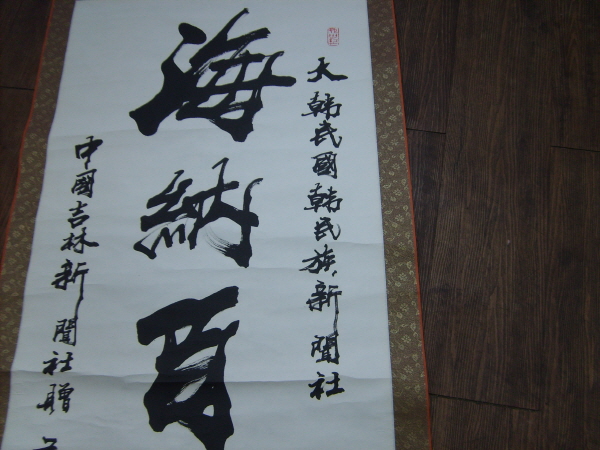 大韓民國韓民族新聞社
海納百
中國吉林新聞社贈